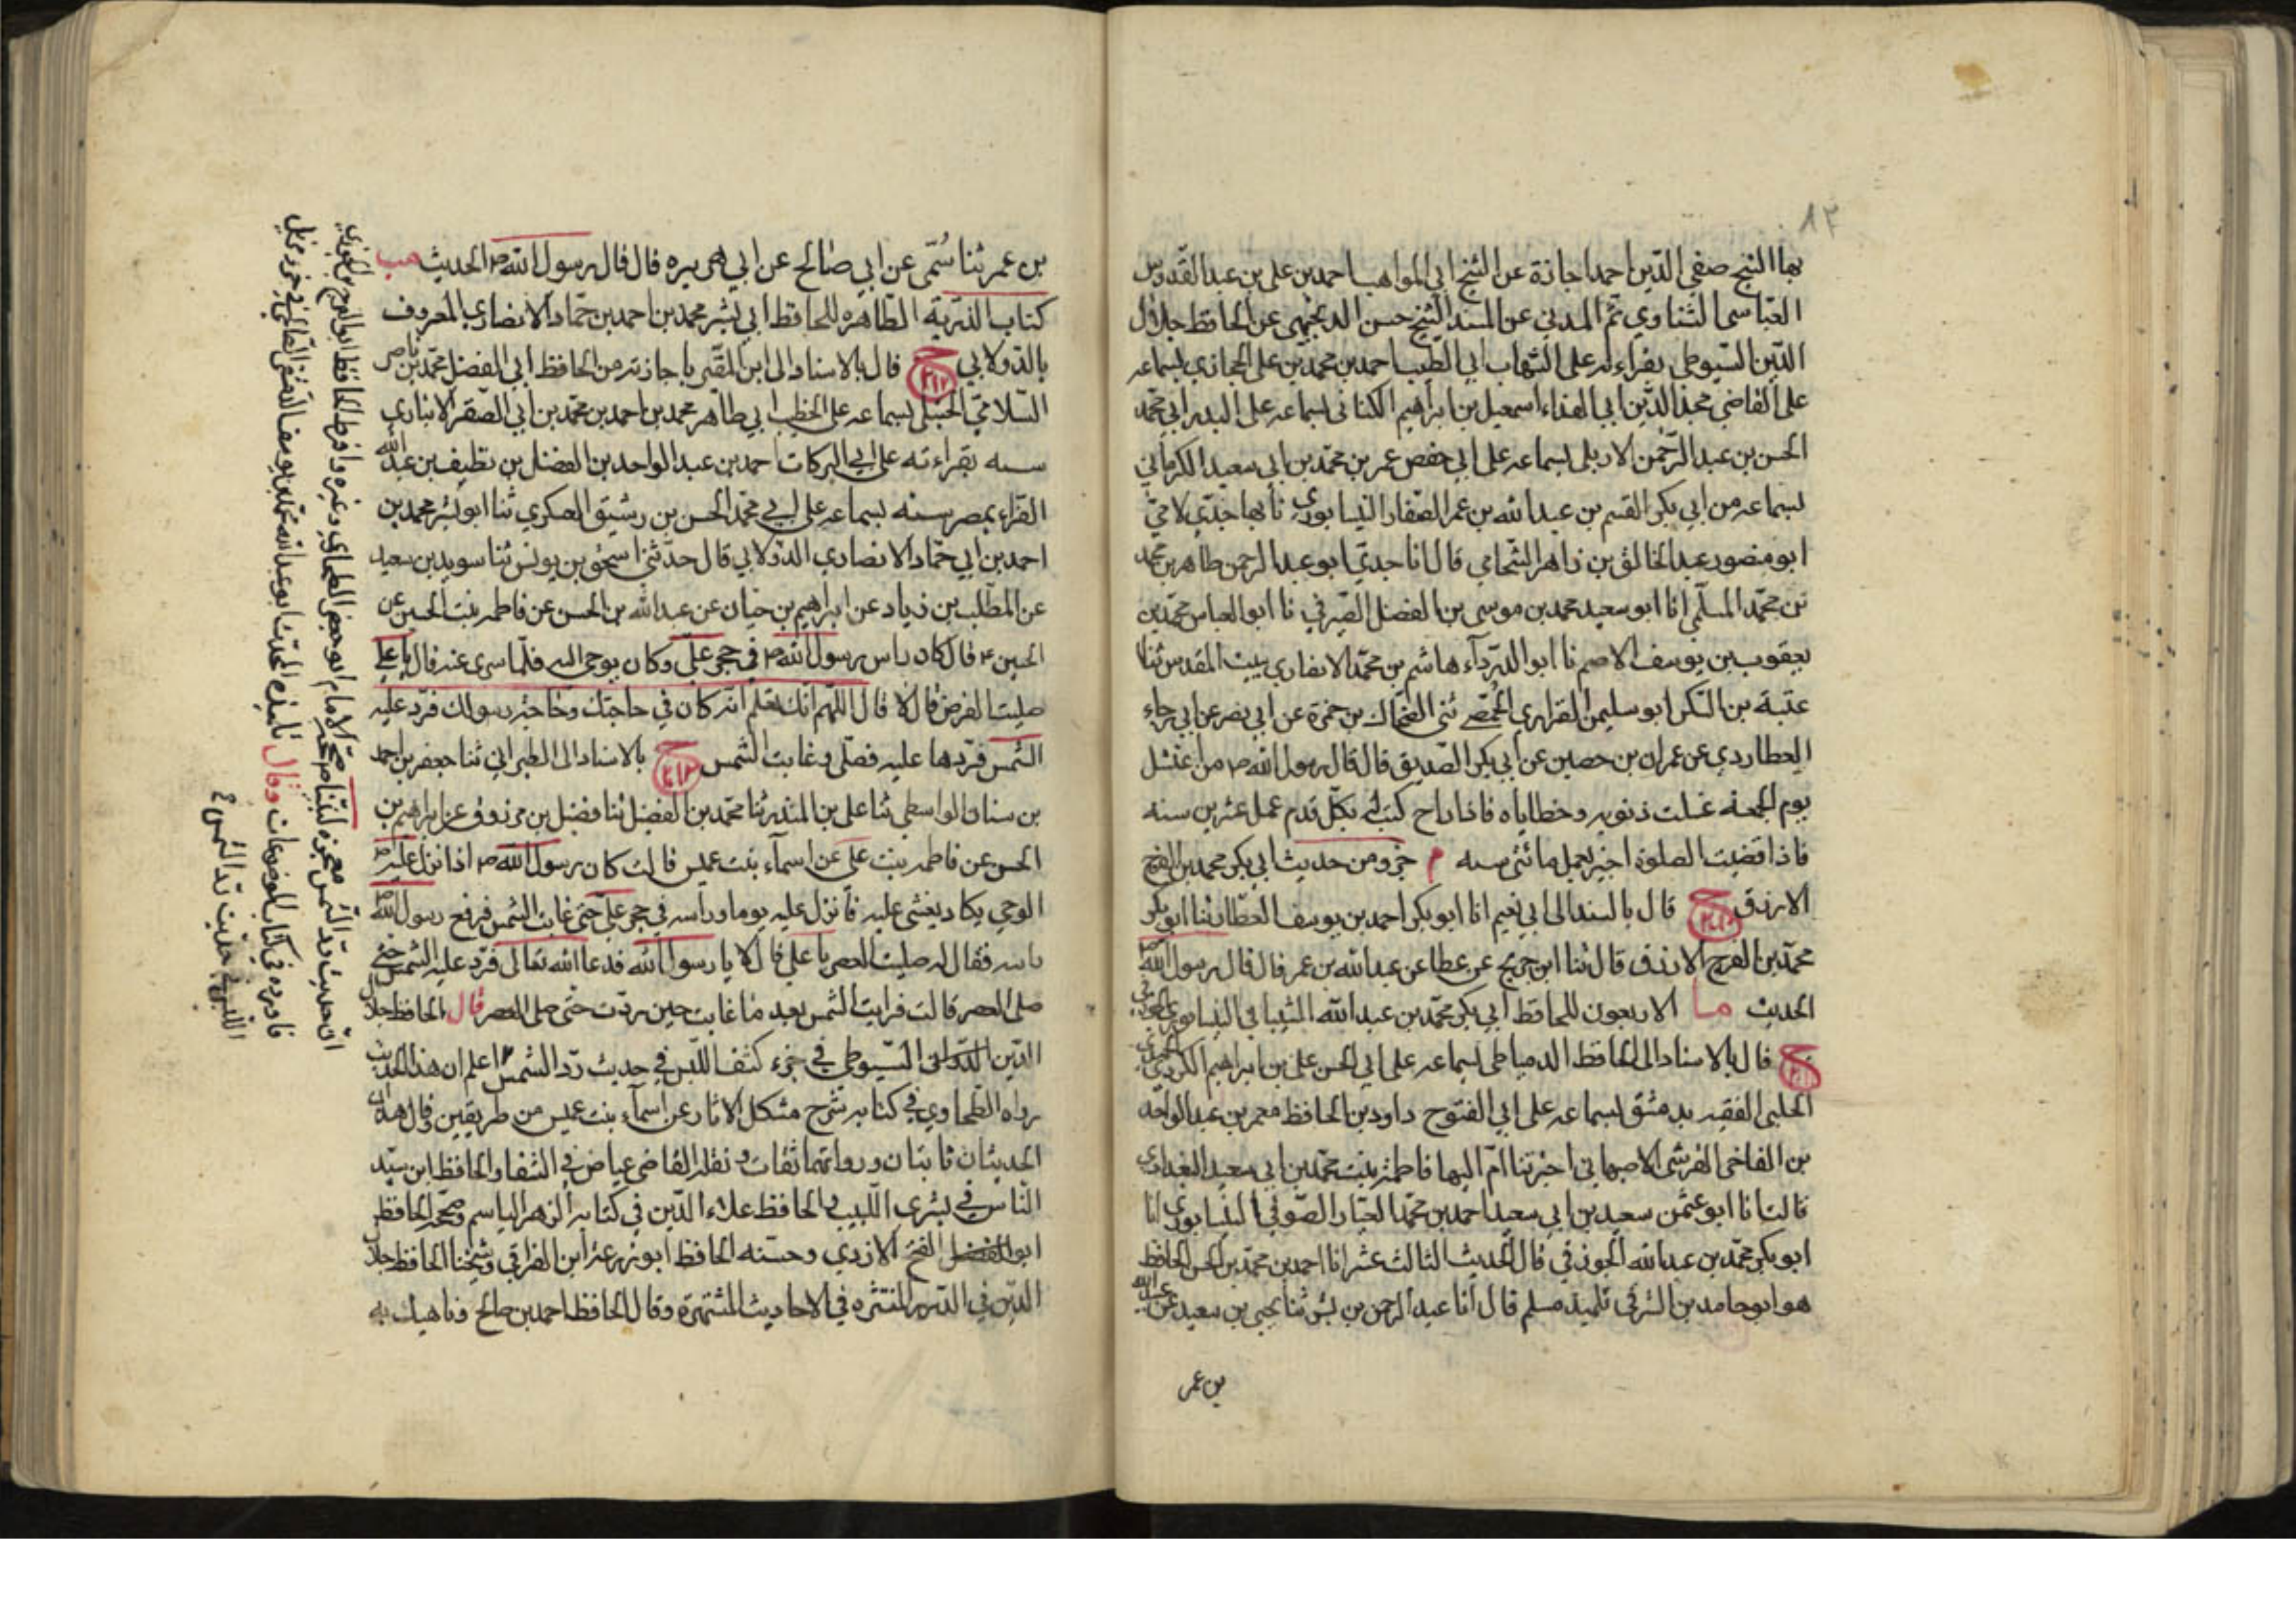 ١٢
بها الشيخ صفي الدين احمد اجازة عن الشيخ ابي المواهب احمد بن علي بن عبد القدوس
العباسي الشناوي ثم المدني عن المسند الشيخ حسن الدنجيهي عن الحافظ جلال
الدين السيوطي بقراءته على الشهاب ابي الطيب احمد بن محمد بن علي الحجازي بسماعه
على القاضي مجد الدين ابي الفداء اسمعيل بن ابراهيم الكناني بسماعه على البدر ابي محمد
الحسن بن عبد الرحمن الاربلي بسماعه على ابي حفص عمر بن محمد بن ابي سعيد الكرماني
بسماعه من ابي بكر القسم بن عبد الله بن عمر الصفار النيسابوري نا بها جدتي لامي
ابو منصور عبد الخالق بن زاهر الشحامي قال انا جدي ابو عبد الرحمن طاهر بن محمد
بن محمد المسلمي انا ابو سعيد محمد بن موسى بن الفضل الصيرفي نا ابو العباس محمد بن
يعقوب بن يوسف الاصم نا ابو الدرداء هاشم بن محمد الانصاري ببيت المقدس ثنا
عتبة بن السكن ابو سليمن الفزاري الحمصي ثنى الضحاك بن حمزة عن ابي نصر عن ابي رجاء
العطاردي عن عمران بن حصين عن ابي بكر الصديق قال قال رسول الله ص من اغتسل
يوم الجمعة غسلت ذنوبه وخطاياه فاذا راح كتب له بكل قدم عمل عشرين سنه
فاذا قضيت الصلوة اجيز بعمل مائتي سنه م جزء من حديث ابي بكر محمد بن الفرج
الازرق ح قال بالسند الى ابي نعيم انا ابو بكر احمد بن يوسف العطار ثنا ابو بكر
محمد بن الفرج الازرق قال ثنا ابن جريج عن عطا عن عبد الله بن عمر قال قال رسول الله ص
الحديث ما الاربعون للحافظ ابي بكر محمد بن عبد الله الشيباني النيسابوري الجوزقي
ح قال بالاسناد الى الحافظ الدمياطي بسماعه على ابي الحسن علي بن ابراهيم الكردي
الحلبي الفقيه بدمشق بسماعه على ابي الفتوح داود بن الحافظ معمر بن عبد الواحد
بن الفاخر القرشي الاصبهاني اخبرتنا ام البها فاطمة بنت محمد بن ابي سعيد البغدادي
قالت انا ابو عثمن سعيد بن ابي سعيد احمد بن محمد العيار الصوفي النيسابوري انا
ابو بكر محمد بن عبد الله الجوزقي قال الحديث الثالث عشر انا احمد بن محمد بن الحسن الحافظ
هو ابو حامد بن الشرقي تلميذ مسلم قال انا عبد الرحمن بن بشر ثنا يحيى بن سعيد عن عبيد الله
بن عمر
بن عمر ثنا سُمَي عن ابي صالح عن ابي هريره قال قال رسول الله ص الحديث مب
كتاب الذرية الطاهره للحافظ ابي بشر محمد بن احمد بن حماد الانصاري المعروف
بالدولابي ح ٢١٢ قال بالاسناد الى ابن المقير باجازته من الحافظ ابي الفضل محمد بن ناصر
السلامي الحنبلي بسماعه على الخطيب ابي طاهر محمد بن احمد بن محمد بن ابي الصقر الانباري
سنه بقراءته على ابي البركات احمد بن عبد الواحد بن الفضل بن نظيف بن عبد الله
الفراء بمصر سنه بسماعه على ابي محمد الحسن بن رشيق العسكري ثنا ابو بشر محمد بن
احمد بن ابي حماد الانصاري الدولابي قال حدثني اسحق بن يونس ثنا سويد بن سعيد
عن المطلب بن زياد عن ابراهيم بن حيان عن عبد الله بن الحسن عن فاطمه بنت الحسين عن
الحسين ع قال كان راس رسول الله ص في حجر علي وكان يوحى اليه فلما سري عنه قال يا علي
صليت الفرض قال لا قال اللهم انك تعلم انه كان في حاجتك وحاجة رسولك فرد عليه
الشمس فردها عليه فصلى وغابت الشمس ح بالاسناد الى الطبراني ثنا جعفر بن احمد
بن سنان الواسطي ثنا علي بن المنذر ثنا محمد بن الفضيل ثنا فضيل بن مرزوق عن ابراهيم بن
الحسن عن فاطمه بنت علي عن اسماء بنت عميس قالت كان رسول الله ص اذا نزل عليه
الوحي يكاد يغشى عليه فأنزل عليه يوما ورأسه في حجر علي حتى غابت الشمس فرفع رسول الله
راسه فقال له صليت العصر يا علي قال لا يا رسول الله فدعا الله تعالى فرد عليه الشمس حتى
صلى العصر قالت فرايت الشمس بعد ما غابت حين ردت حتى صلى العصر قال الحافظ جلال
الدين السيوطي في جزء كشف اللبس في حديث رد الشمس اعلم ان هذا الحديث
رواه الطحاوي في كتابه شرح مشكل الاثار عن اسماء بنت عميس من طريقين وقال هذان
الحديثان ثابتان ورواتهما ثقات ونقله القاضي عياض في الشفا والحافظ ابن سيد
الناس في بشرى اللبيب والحافظ علاء الدين في كتابه الزهر الباسم وصححه الحافظ
ابو الفتح الازدي وحسنه الحافظ ابو زرعة ابن العراقي وشيخنا الحافظ جلال
الدين في الدرر المنتثره في الاحاديث المشتهرة وقال الحافظ احمد بن صالح وناهيك به
ان حديث رد الشمس معجزه لنبينا ص صححه الامام ابو جعفر الطحاوي وغيره وافرط الحافظ ابو الفرج بن الجوزي
فاورده في كتاب الموضوعات وقال تلميذه المحدث ابو عبد الله محمد بن يوسف الدمشقي الصالحي في جزء مزيل
اللبس في حديث رد الشمس